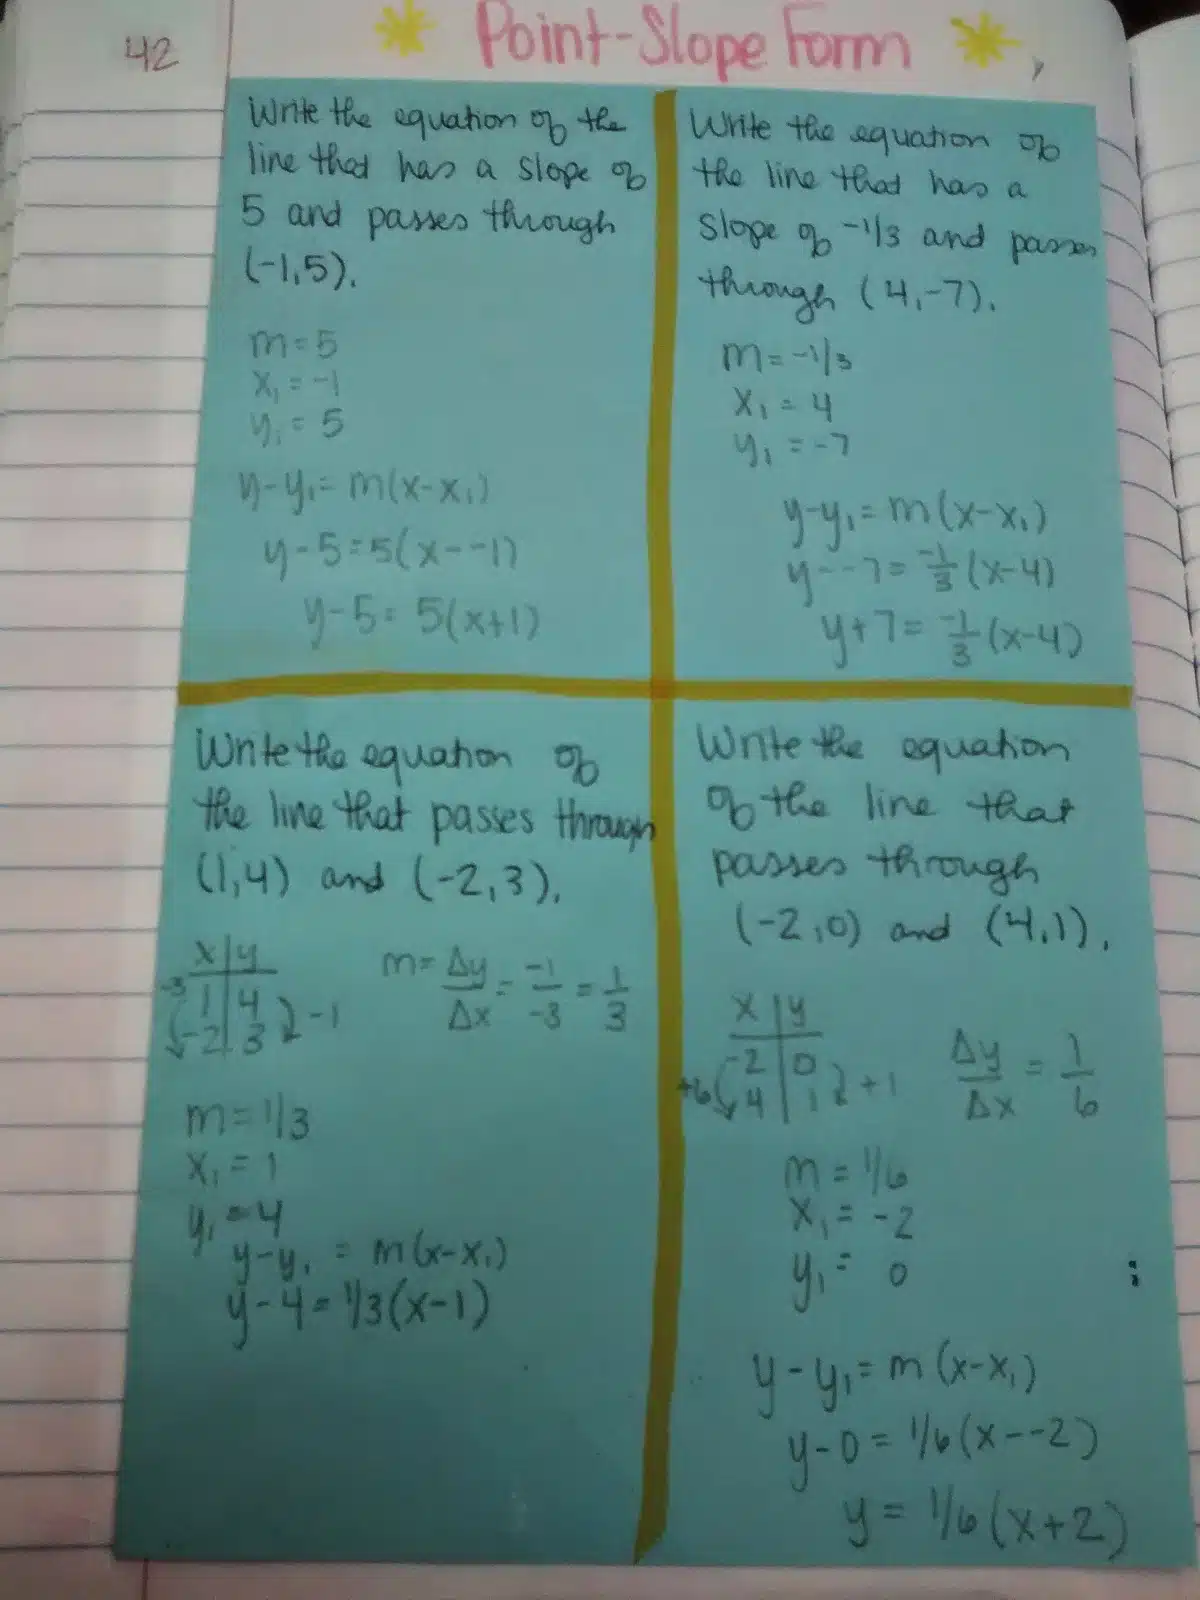 42
Point-Slope Form
Write the equation of the
line that has a slope of
5 and passes through
(-1,5).
m=5
x₁=-1
y₁=5
y-y₁=m(x-x₁)
y-5=5(x--1)
y-5=5(x+1)
Write the equation of
the line that has a
slope of -1/3 and passes
through (4,-7).
m=-1/3
x₁=4
y₁=-7
y-y₁=m(x-x₁)
y--7=-1/3(x-4)
y+7=-1/3(x-4)
Write the equation of
the line that passes through
(1,4) and (-2,3).
x|y
-3 1|4 -1
-2|3
m=Δy/Δx=-1/-3=1/3
m=1/3
x₁=1
y₁=4
y-y₁=m(x-x₁)
y-4=1/3(x-1)
Write the equation
of the line that
passes through
(-2,0) and (4,1).
x|y
-2|0
+6 4|1 +1
Δy/Δx=1/6
m=1/6
x₁=-2
y₁=0
y-y₁=m(x-x₁)
y-0=1/6(x--2)
y=1/6(x+2)